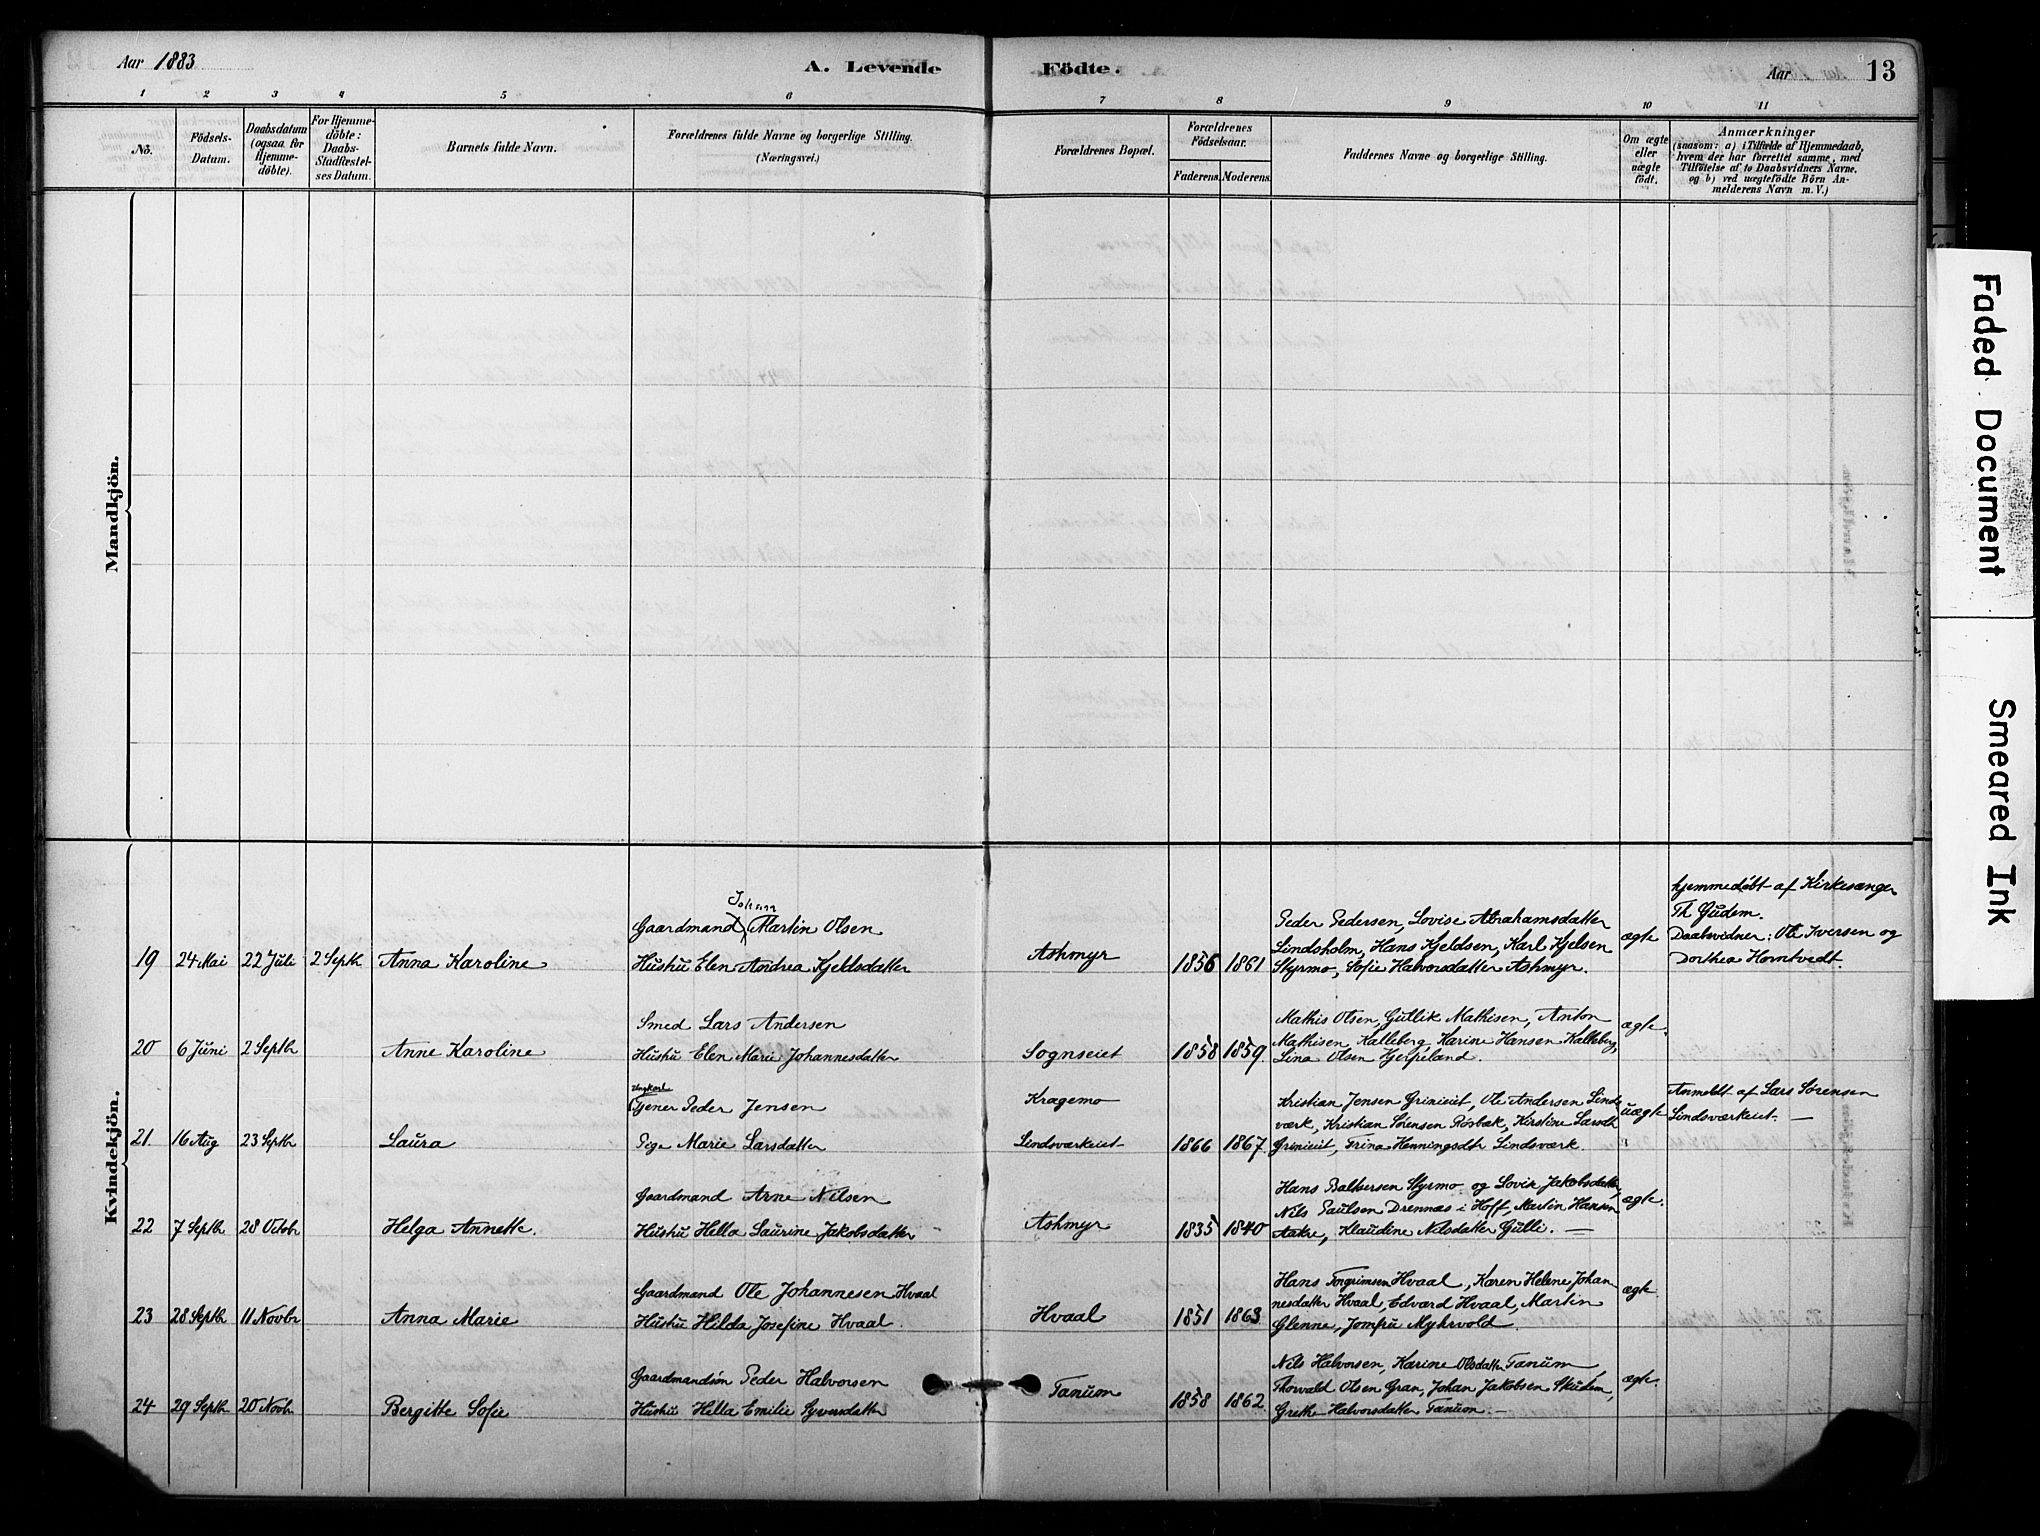 Aar 1883
A. Levende Födte.
Aar
13
1 2 3 4 5 6 7 8 9 10 11
No.
Födsels-
Datum.
Daabsdatum
(ogsaa for
Hjemme-
döbte).
For Hjemme-
döbte:
Daabs-
Stadfæstel-
ses Datum.
Barnets fulde Navn.
Forældrenes fulde Navne og borgerlige Stilling.
(Næringsvei.)
Forældrenes Bopæl.
Forældrenes
Födselsaar.
Faderens.
Moderens.
Faddernes Navne og borgerlige Stilling.
Om ægte
eller
uægte
födt.
Anmærkninger
(saasom: a) i Tilfælde af Hjemmedaab,
hvem der har forrettet samme, med
Tilföielse af to Daabsvidners Navne,
og b) ved uægtefödte Börn An-
melderens Navn m. V.)
Mandkjön.
Kvindekjön.
19 24 Mai 22 Juli 2 Septb Anna Karoline
Johann
Gaardmand Martin Olsen
Hustru Elen Andrea Kjeldsdatter
Ashmyr
1856 1861
Peder Pedersen, Lovise Abrahamsdatter
Lindsholm, Hans Kjeldsen, Karl Kjelsen
Styrmo, Sofie Halvorsdatter Ashmyr.
ægte
hjemmedøbt af Kirkesanger
Th Gudem.
Daabsvidner: Ole Iversen og
Dorthea Horntvedt.
20 6 Juni 2 Septb Anne Karoline
Smed Lars Andersen
Hustru Elen Marie Johannesdatter
Sognseiet
1858 1859.
Mathis Olsen, Gullik Mathisen, Anton
Mathisen Kalleberg, Karine Hansen Kalleberg,
Lina Olsen Hjerpeland.
ægte.
21 16 Aug 23 Septb Laura
Ungkarl
Tjener Peder Jensen
Pige Marie Larsdatter
Kragemo
Lindsværkeiet
1866 1867.
Kristian Jensen Grinieit, Ole Andersen Linds
værk, Kristian Sørensen Rosbæk, Kirstine Larsdt
Grinieit, Trina Henningsdtr Lindsværk.
uægte
Anmeldt af Lars Sørensen
Lindsværkeiet. —
22 7 Septb 28 Octobr Helga Annette.
Gaardmand Arne Nilsen
Hustru Hella Laurine Jakobsdatter
Ashmyr
1835 1840
Hans Baltsersen Styrmo og Lovise Jakobsdatter,
Nils Paulsen Drennæs i Hoff, Martin Hansen
Aakre, Klaudine Nilsdatter Gulli. —
ægte.
23 28 Septb 11 Novbr Anna Marie
Gaardmand Ole Johannesen Hvaal
Hustru Hilda Josefine Hvaal.
Hvaal
1851 1863
Hans Torgrimsen Hvaal, Karen Helene Johan
nesdatter Hvaal, Edvard Hvaal, Martin
Glenne, Jomfru Myhrvold.
ægte.
24 29 Septb 20 Novbr Bergitte Sofie
Gaardmandsøn Peder Halvorsen
Hustru Hella Emilie Syversdatter
Tanum
1858 1862.
Nils Halvorsen, Karine Olsdatter Tanum,
Thorvald Olsen Gran, Johan Jakobsen Skudem,
Grethe Halvorsdatter Tanum. —
ægte.
Faded Document
Smeared Ink